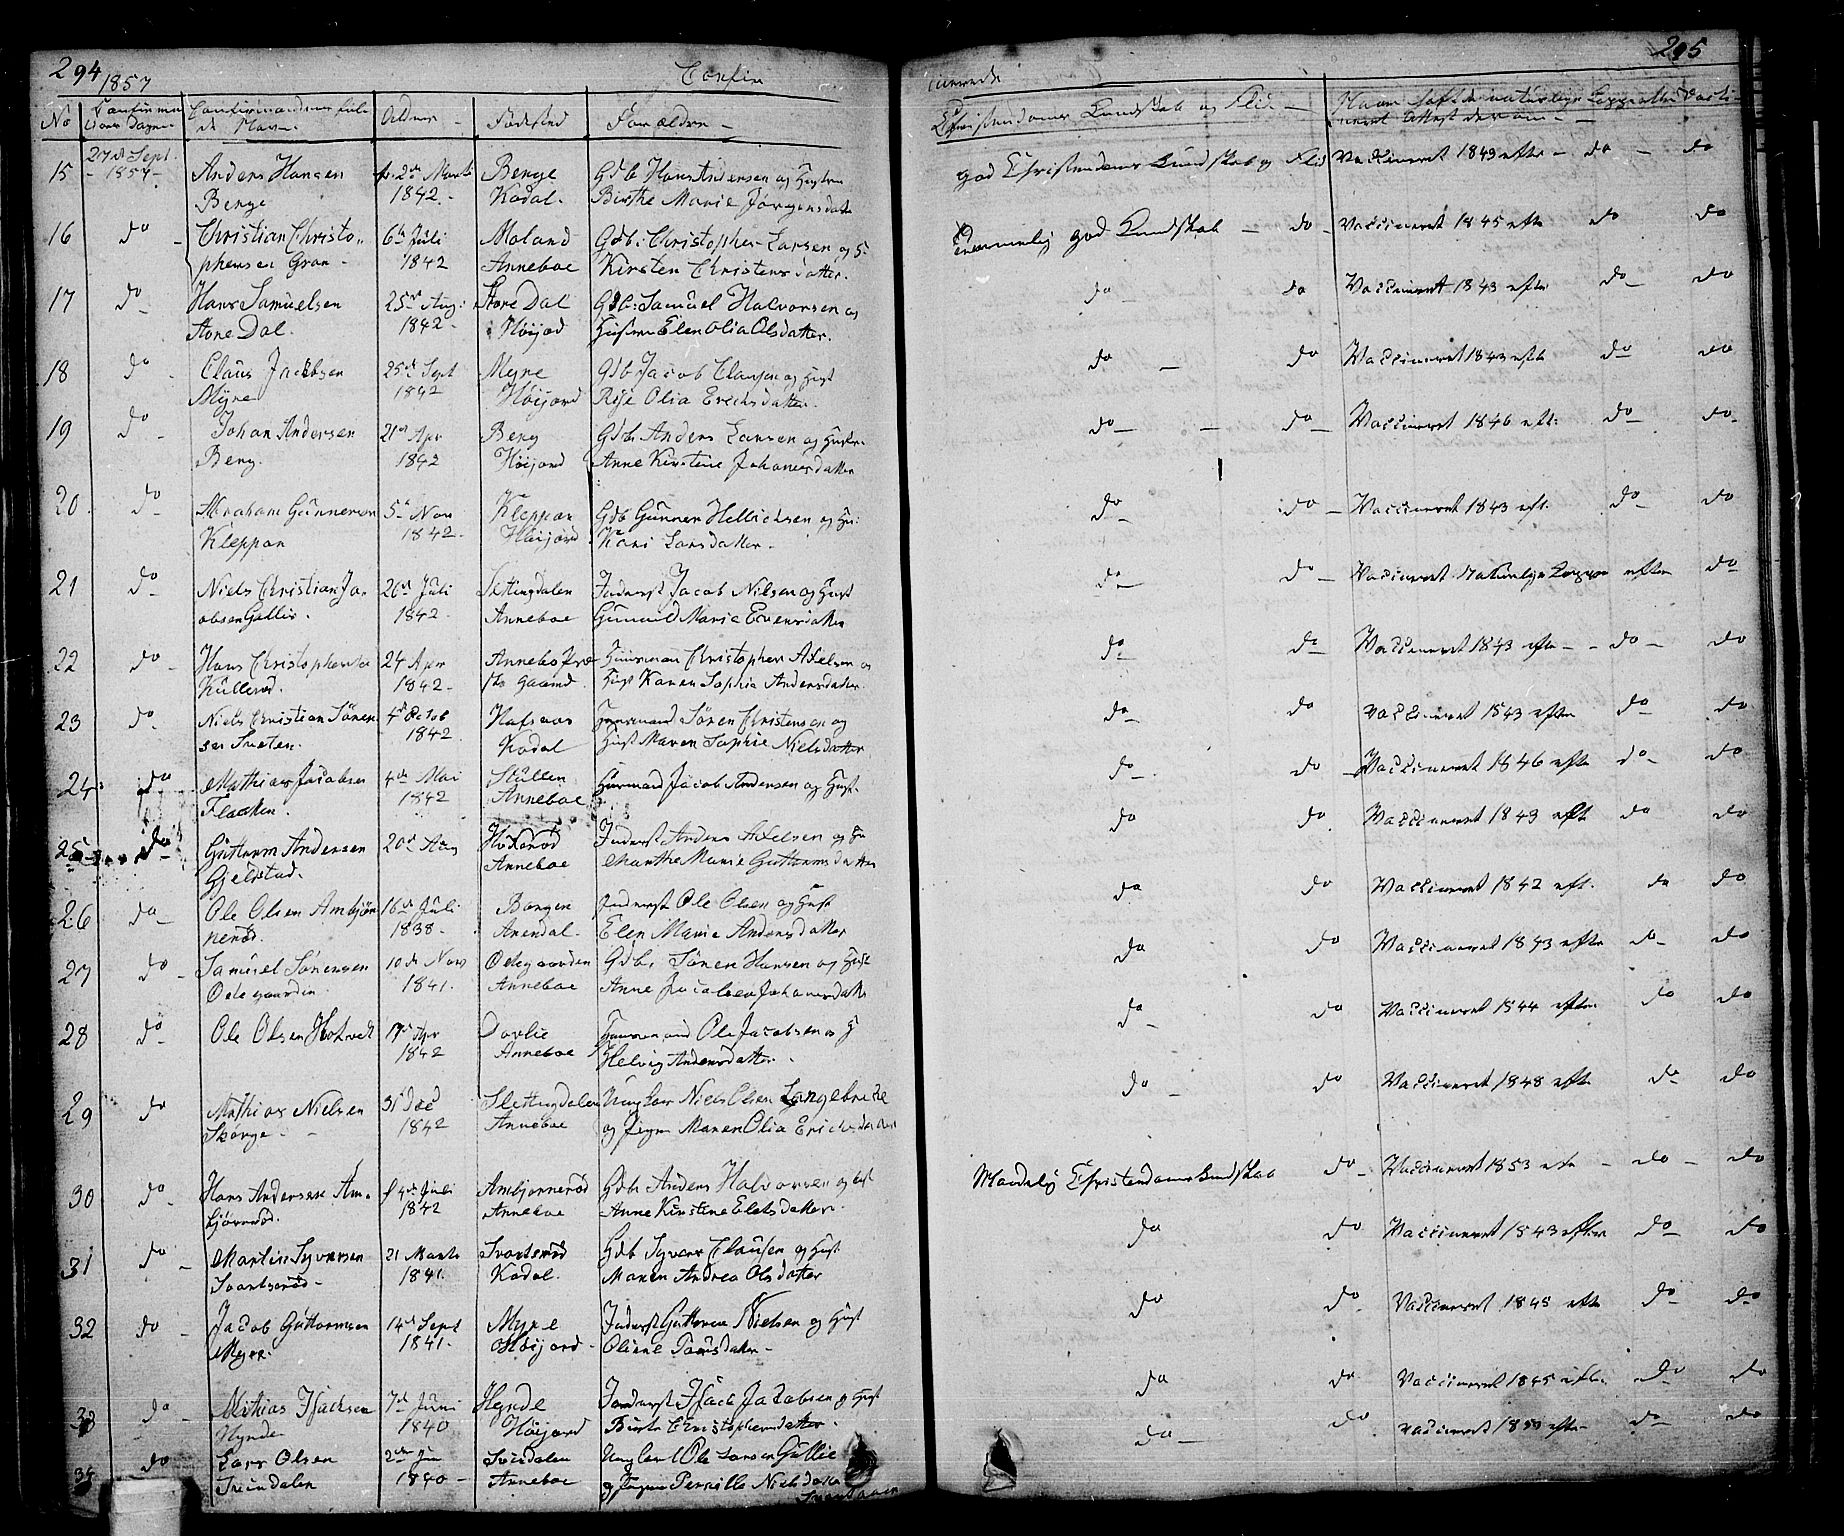 294 1857
Confir
No
Confirma
tions Dagen
Confirmandernes fulde
Navn
Alder
Fødested
Forældre
27de Sept.
15 - 1857 - Anders Hansen f. 2den Marts Berge Gdb Hans Andersen og Hustru
Berge 1842. Kodal. Birthe Marie Jørgensdatter
16 do - Christian Christo- 6te Juli Moland Gdb: Christopher Larsen og
phersen Gran - 1842 Anneboe Kirsten Christensdatter.
17 do - Hans Samuelsen 25de Aug: Store Dal Gdb: Samuel Halvorsen og
Store Dal. 1842 - i Høijord Hustru Elen Olia Olsdatter.
18 do - Claus Jacobsen 25de Sept Myre Gdb Jacob Clausen og Hust
Myre 1842 Høijord Olia Erichsdatter.
19 do - Johan Andersen 21de Apr Berg Gdb. Anders Larsen og Hustr.
Berg. 1842 Høijord Anne Kirstine Johanesdatter
20. do - Abraham Gunnersen 5te Nov Kleppan Gdb Gunner Hellichsen og Hu:
Kleppan 1842. Høijord Kari Larsdatter.
21 do - Niels Christian Ja- 26de Juli Slettingdalen Inderst Jacob Nilsen og Hust
cobsen Gallis. 1842. Anneboe Gunnild Marie Evensdatter
22 do - Hans Christophersen 24 Apr Annebo Præ Huusmand Christopher Axelsen og
Kullerød. 1842 - ste gaard. Hust Karen Sophie Andersdatter.
23 do - Niels Christian Søren 4de Octob Hafsaas Huusmand Søren Christensen og
sen Sneten. 1842. Kodal Hust Maren Sophie Nielsdatter
24 do Mathias Jacobsen 4de Mai Skullen Huusmand Jacob Andersen og Hust.
Flaaken. 1842 Anneboe
25 do - Guttorm Andersen 20de Aug Høkerød Inderst Anders Axelsen og Hu
Gjelstad. Anneboe Marthe Marie Guttormsdatter
26 do - Ole Olsen Ambjør 16de Juli Borgen Inderst Ole Olsen og Hust
nerød. 1838. Arendal. Elen Maria Andersdatter
27 do - Samuel Sørensen 10de Nov Ødegaarden Gdb. Søren Hansen og Hust
Ødegaarden 1841. Anneboe Anne Jacobea Johanesdatter
28 do - Ole Olsen Hotvedt 17de Apr Dovlie Huusmand Ole Jacobsen og H
1842 Anneboe Helvig Andersdatter.
29 do Mathias Nielsen 31 Dec Slettingdalen Ungkar Niels Olsen Langebrekke
Skorge - 1842 Anneboe og Pigen Maren Olia Erichsdatter
30 do - Hans Andersen Am- f 4de Juli Ambjørnerød Gdb. Anders Halvorsen og Hust
bjørnrød. 1842 Anneboe Anne Kirstine Elefsdatter.
31 do - Martin Syversen 21 Marts Svartsrød Gdb Syver Clausen og Hust
Svartsrød - 1841. Kodal. Maren Andrea Olsdatter
32 do - Jacob Guttormsen 14de Sept Myre Inderst Guttorm Nielsen og Hust
Myre. 1841. Høijord - Oliene Larsdatter -
33 do - Mathias Isachsen 7de Juni Hynde Inderst Isach Jacobsen og Hust
Hynde 1840 Høijord Birte Christophersdatter.
34 do Lars Olsen 2den Svindalen Ungkarl Ole Larsen Gallie
Svindalen 1840 - Anneboe og Pigen Pernille Nielsdatter
295
merede
Christendoms Kundskab og Flid - Have haft de naturlige Kopper eller Vacci-
neret Attest derom -
god Christendoms Kundskab og Flid Vaccineret 1843 efter - do - do
Temmelig god Kundskab - do - Vaccineret 1845 efter do do
do - do Vaccineret 1843 efter do - do
do - do Vaccineret 1843 efte do do
do - - do - Vaccineret 1846 eft: do - do -
do - do - Vaccineret 1843 eft. do - do
do - do - Vaccineret naturlige Kopper efter do
do - do - Vaccineret 1843 efte - - do - do
do - do Vaccineret 1843 efter do - do
do - do - Vaccineret 1846 efte do - do
do do Vaccineret 1843 eft do do
do do Vaccineret 1842 eft. do do
do - do Vaccineret 1843 efte do - do
do - do Vaccineret 1844 efter do do
do - do Vaccineret 1848 efte do - do
Maadelig Christendoms Kundskab do - Vaccineret 1853 efte - do - do
do do Vaccineret 1843 efter do - do
do do Vaccineret 1845 efte do - do
do do Vaccineret 1845 eft. do do
do - do Vaccineret 1850 efte - do - do